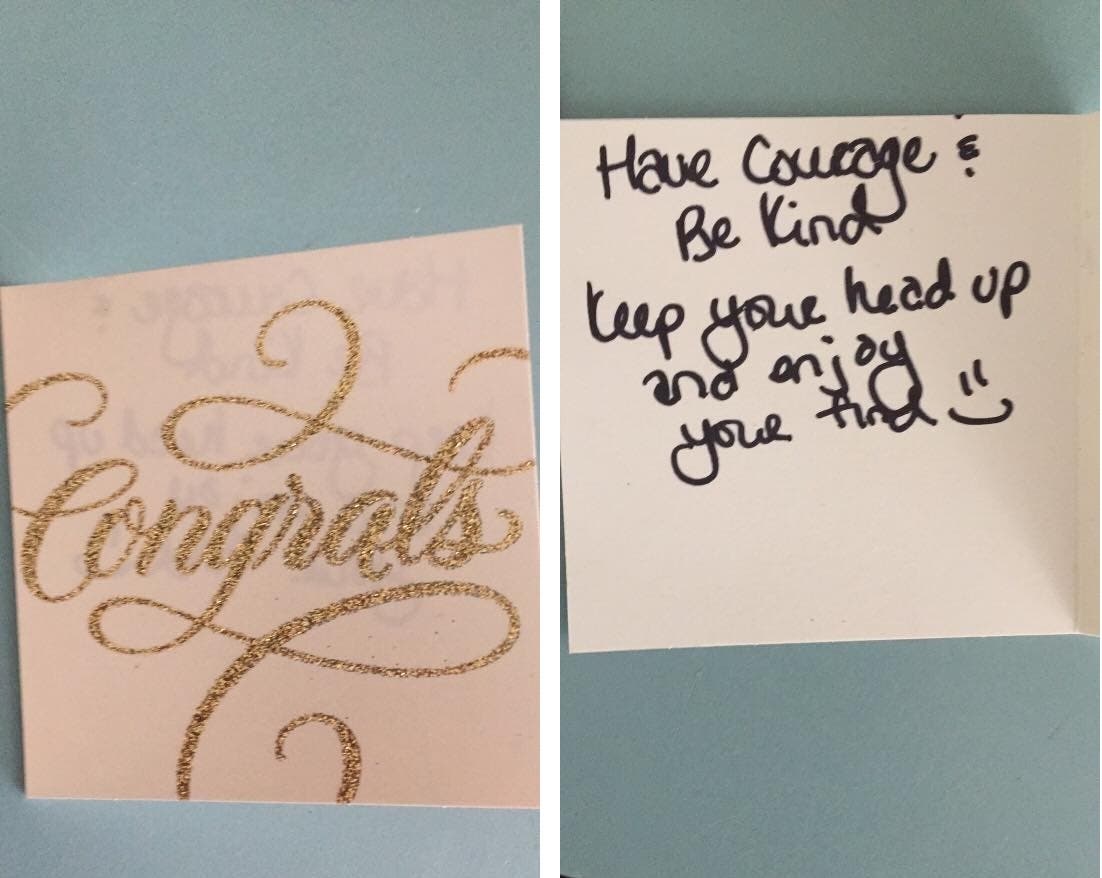 Congrats
Have Courage &
Be Kind
Keep your head up
and enjoy
your find